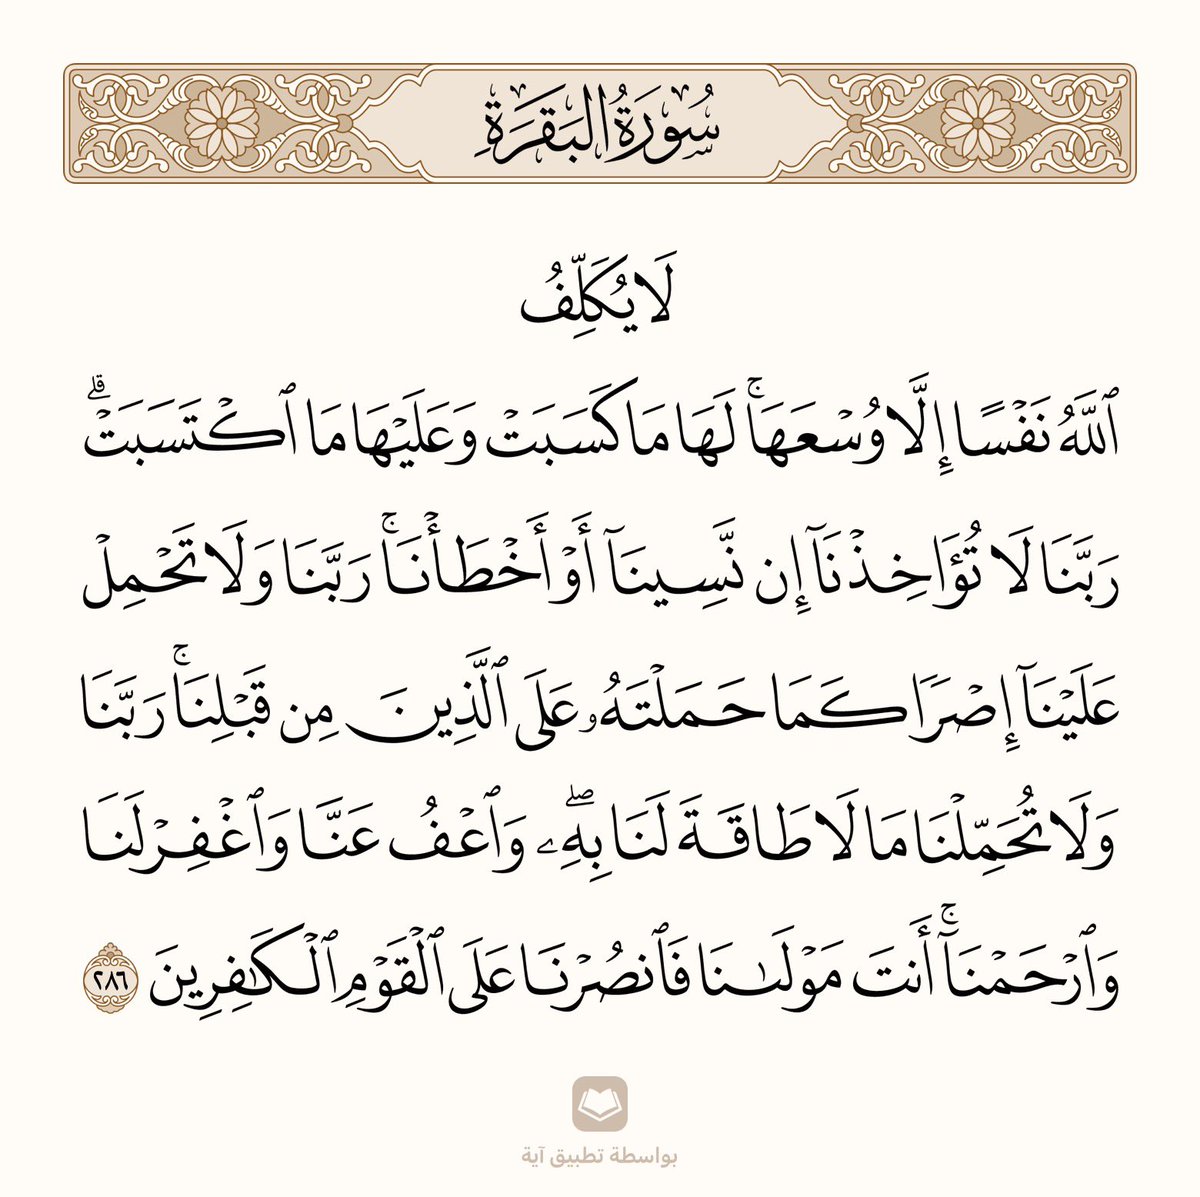 سُورَةُ البَقَرَةِ
لَا يُكَلِّفُ
ٱللَّهُ نَفۡسًا إِلَّا وُسۡعَهَاۚ لَهَا مَا كَسَبَتۡ وَعَلَيۡهَا مَا ٱكۡتَسَبَتۡۗ
رَبَّنَا لَا تُؤَاخِذۡنَآ إِن نَّسِينَآ أَوۡ أَخۡطَأۡنَاۚ رَبَّنَا وَلَا تَحۡمِلۡ
عَلَيۡنَآ إِصۡرٗا كَمَا حَمَلۡتَهُۥ عَلَى ٱلَّذِينَ مِن قَبۡلِنَاۚ رَبَّنَا
وَلَا تُحَمِّلۡنَا مَا لَا طَاقَةَ لَنَا بِهِۦۖ وَٱعۡفُ عَنَّا وَٱغۡفِرۡ لَنَا
وَٱرۡحَمۡنَآۚ أَنتَ مَوۡلَىٰنَا فَٱنصُرۡنَا عَلَى ٱلۡقَوۡمِ ٱلۡكَٰفِرِينَ ٢٨٦
بواسطة تطبيق آية